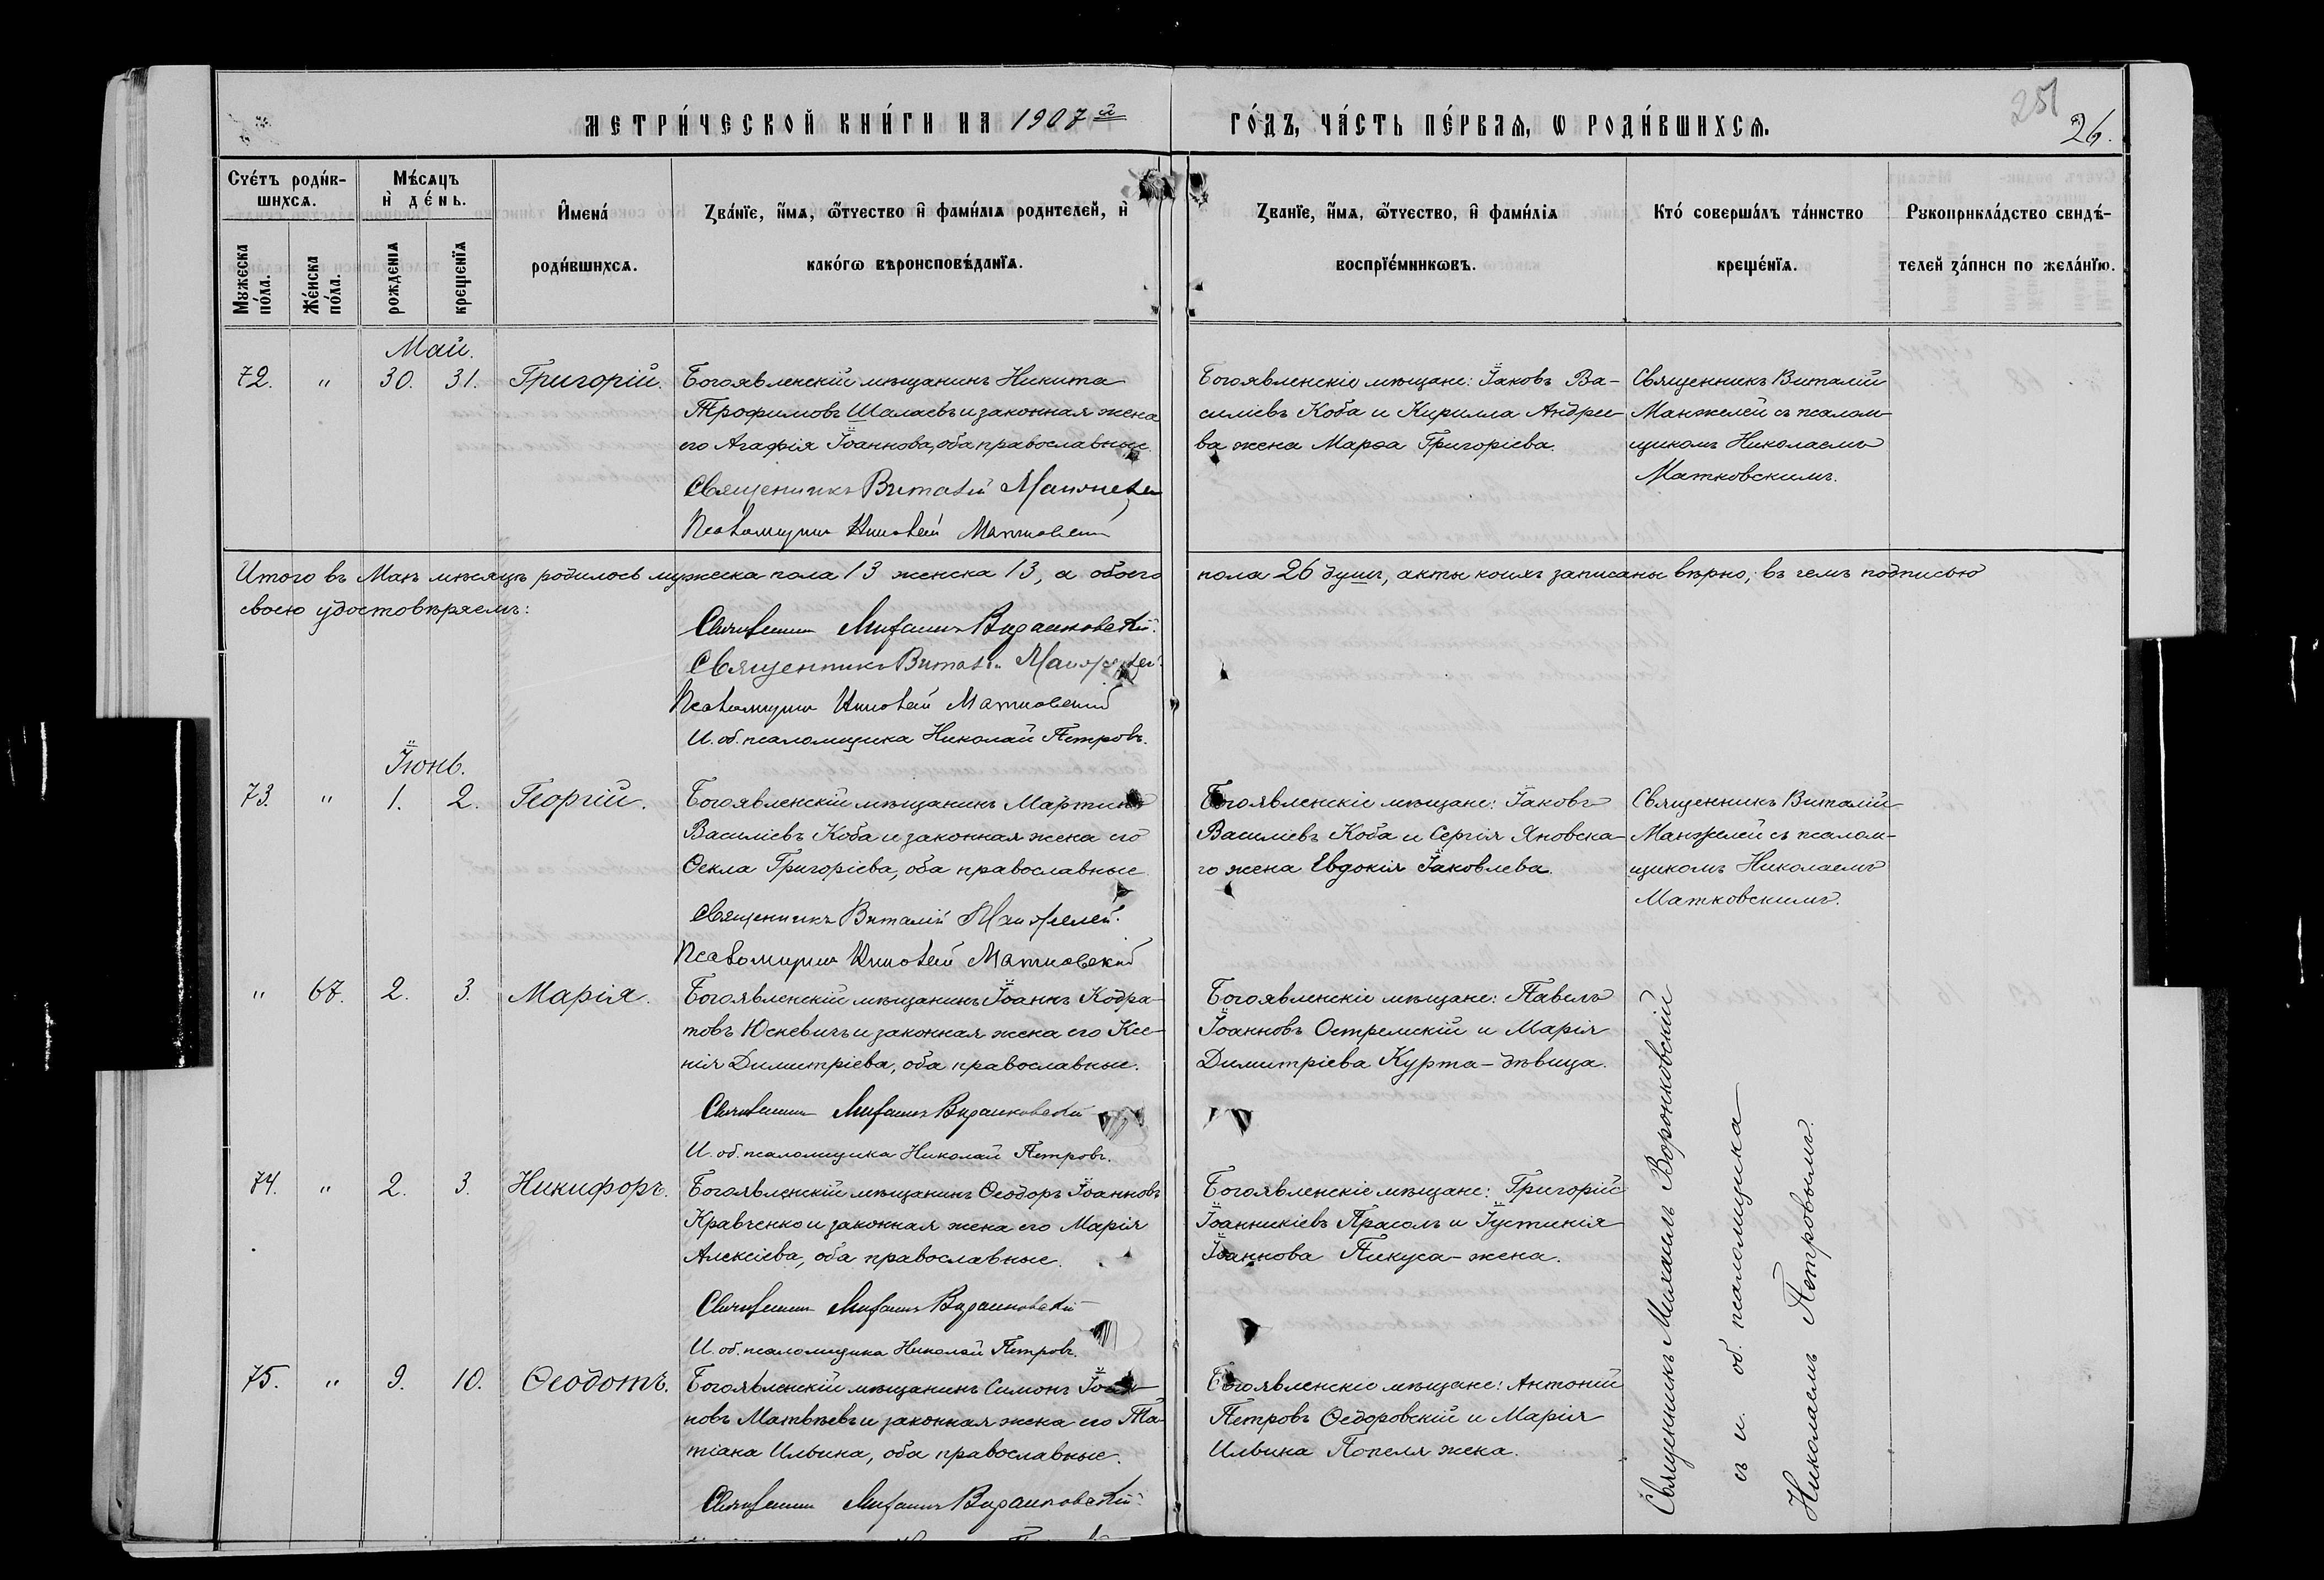 МЕТРИ́ЧЕСКОЙ КНИ́ГИ НА 1907й ГО́ДЪ, ЧА́СТЬ ПЕ́РВАѦ, Ѡ РОДИ́ВШИХСѦ.
251
26.
Сче́тъ роди́в-
шихсѧ.
Мꙋжеска
по́ла.
Же́нска
по́ла.
Мѣ́сѧцъ
и҆ де́нь.
рожденїѧ
крещенїѧ
И҆мена́
роди́вшихсѧ.
Зва́нїе, и҆́мѧ, ѻ҆́тчество и҆ фами́лїѧ родителей, и҆
како́гѡ вѣроисповѣ́данїѧ.
Званїе, и҆́мѧ, ѻ҆́тчество, и҆ фами́лїѧ
воспрїе́мникѡвъ.
Кто́ соверша́лъ та́инство
креще́нїѧ.
Рꙋкоприкла́дство свидѣ́-
телей за́писи по жела́нїю.
Май.
72. " 30. 31. Григорій.
Богоявленскій мѣщанинъ Никита
Трофимовъ Шалаевъ и законная жена
его Агафія Іоаннова, оба православные
Священникъ Виталій Манжелей
Псаломщикъ Николай Матковский
Богоявленскіе мѣщане: Іаковъ Ва-
силіевъ Коба и Кирилла Андрее-
ва жена Марѳа Григоріева.
Священникъ Виталій
Манжелей съ псалом-
щикомъ Николаемъ
Матковскимъ.
Итого въ Маѣ мѣсяцѣ родилось мужеска пола 13 женска 13, а обоего пола 26 душъ, акты коихъ записаны вѣрно, въ чемъ подписью
своею удостовѣряемъ:
Священникъ Михаилъ Воронковскій.
Священникъ Виталій Манжелей
Псаломщикъ Николай Матковский
И. об. псаломщика Николай Петровъ.
Іюнь.
73. " 1. 2. Георгій.
Богоявленскій мѣщанинъ Мартинъ
Василіевъ Коба и законная жена его
Ѳекла Григоріева, оба православные
Священникъ Виталій Манжелей.
Псаломщикъ Николай Матковский
Богоявленскіе мѣщане: Іаковъ
Василіевъ Коба и Сергія Яновска-
го жена Евдокія Іаковлева.
Священникъ Виталій
Манжелей съ псалом-
щикомъ Николаемъ
Матковскимъ.
" 67. 2. 3. Марія.
Богоявленскій мѣщанинъ Іоаннъ Кодра-
товъ Юскевичъ и законная жена его Ксе-
нія Димитріева, оба православные.
Священникъ Михаилъ Воронковскій
И. об. псаломщика Николай Петровъ.
Богоявленскіе мѣщане: Павелъ
Іоанновъ Остремскій и Марія
Димитріева Курта - дѣвица.
74. " 2. 3. Никифоръ.
Богоявленскій мѣщанинъ Ѳеодоръ Іоанновъ
Кравченко и законная жена его Марія
Алексіева, оба православные.
Священникъ Михаилъ Воронковскій
И. об. псаломщика Николай Петровъ.
Богоявленскіе мѣщане: Григорій
Іоанникіевъ Прасолъ и Іустинія
Іоаннова Пикуса - жена.
75. " 9. 10. Ѳеодотъ.
Богоявленскій мѣщанинъ Симонъ Іоан-
новъ Матвѣевъ и законная жена его Та-
тіана Ильина, оба православные.
Священникъ Михаилъ Воронковскій.
Богоявленскіе мѣщане: Антоній
Петровъ Ѳедоровскій и Марія
Ильина Попеля жена.
Священникъ Михаилъ Воронковскій
съ и. об. псаломщика
Николаемъ Петровымъ.